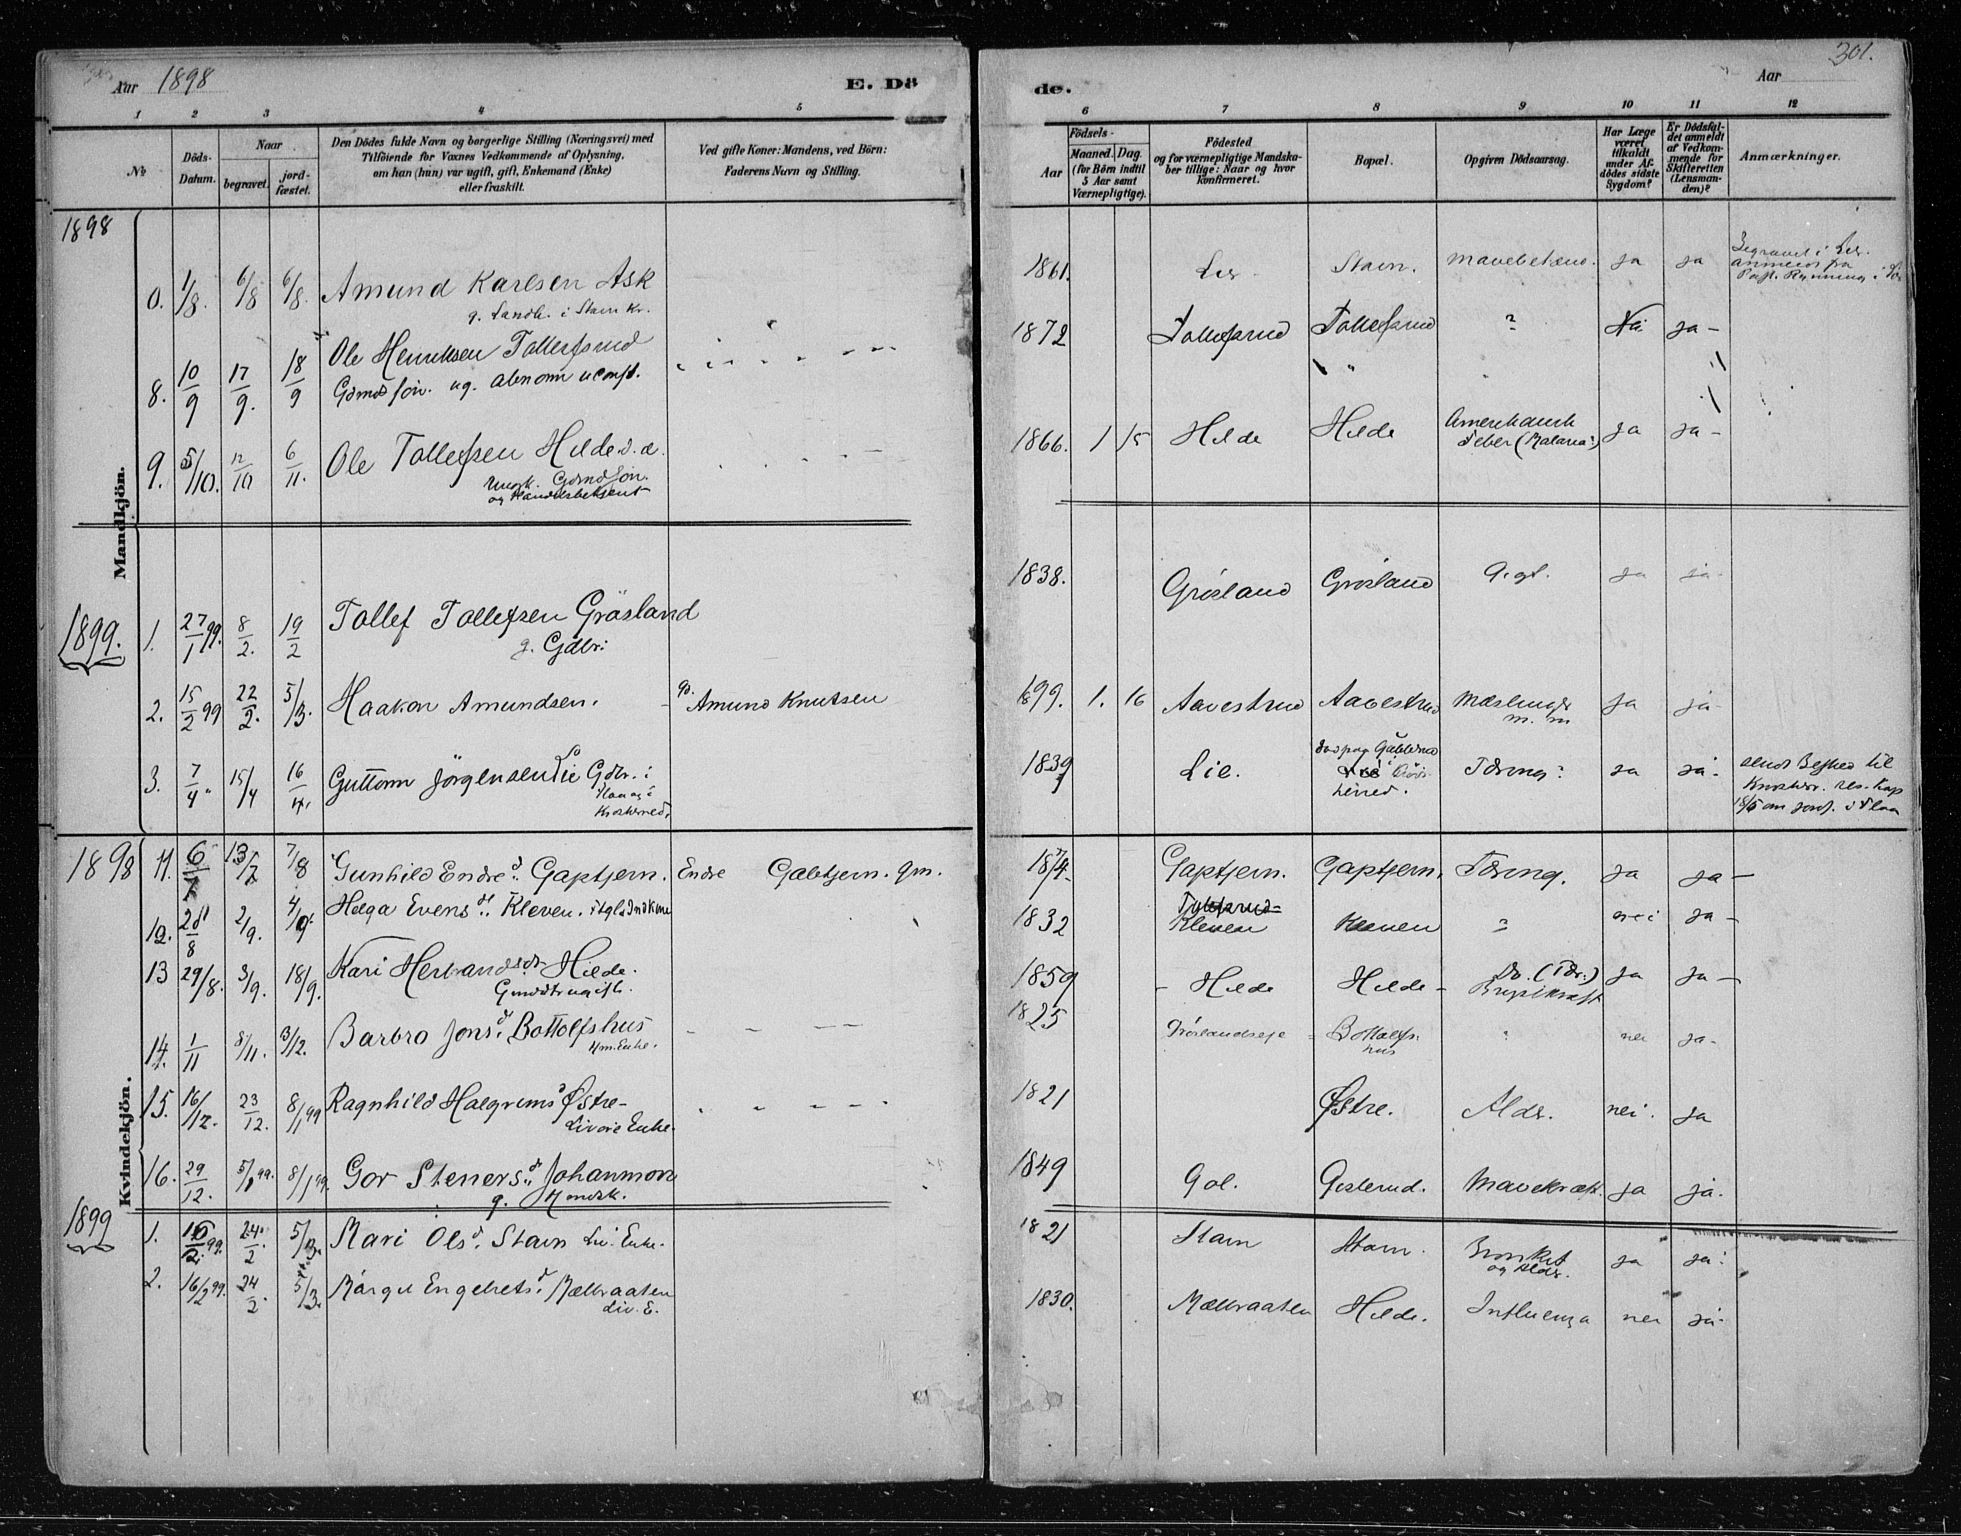 Aar 1898
E. Dö
de.
Aar
301.
1 2 3 4 5
6 7 8 9 10 11 12
№
Döds-Datum.
Naar
begravet.
jord-fæstet.
Den Dödes fulde Navn og borgerlige Stilling (Næringsvei) med
Tilföiende for Voxnes Vedkommende af Oplysning,
om han (hun) var ugift, gift, Enkemand (Enke)
eller fraskilt.
Ved gifte Koner: Mandens, ved Börn:
Faderens Navn og Stilling.
Födsels-
Aar
Maaned.
Dag.
(for Börn indtil
5 Aar samt
Værnepligtige).
Födested
og for værnepligtige Mandska-
ber tillige: Naar og hvor
konfirmeret.
Bopæl.
Opgiven Dödsaarsag.
Har Læge
været
tilkaldt
under Af-
dödes sidste
Sygdom?
Er Dödsfal-
det anmeldt
af Vedkom-
mende for
Skifteretten
(Lensman-
den)?
Anmærkninger.
Mandkjön.
1898
0. 1/8. 6/8 6/8. Amund Karlsen Ask
g. Landh. i Stavn Kr.
1861. Stavn. ja ja
Begravet i
8. 10/9 17/9. 18/9 Ole Henriksen Tollefsrud
Gdmds søn. ug.
1872 Tollefsrud Tollefsrud ? Nei ja -
9. 5/10. 12/10 6/11. Ole Tollefsen Hilde d. æ.
Ungk. Gdmdsøn.
og Handelsbetjent
1866. 1 15 Hilde Hilde Amerikansk
Feber (Malaria:) ja ja -
1899.
1. 27/1 99. 8/2. 19/2 Tollef Tollefsen Gråsland
g. Gdbr:
1838. Grösland Grösland Gigt. ja ja-
2. 15/2 99 22/2. 5/3. Haakon Amundsen. - Amund Knutsen
1899. 1. 16 Aavestrud Aavestrud Mæslinger
m. m ja ja-
3. 7/4. 15/4 16/4. Guttorm Jörgensen Lie Gdbr. i
Krødsherred.
1839 Lie. Tæring: ja ja-
sendt Besked til
Kvindekjön.
1898
11. 6/7 13/7 7/8 Gunhild Endred. Gaptjern. Endre Gabtjern. gm.
1874. Gaptjern. Gaptjern. Tæring. ja ja -
12. 28/8 2/9. 4/9. Helga Evensd. Kleven.
1832 Kleven Kleven ? nei ja -
13 29/8. 3/9. 18/9. Kari Herbrandsdr Hilde.
1859 - Hilde Hilde - (Tær:)
Brystkræft ja ja -
14. 1/11 8/11. 3/12. Barbro Jonsd. Bottolfshus - - -
Hm. Enke.
1825 Gröslandseje Bottolfs-
hus nei ja-
15. 16/12. 23/12. 8/1 99 Ragnhild Halgrimsd Østre-
Livøre Enke.
1821 Østre. Alds. nei. ja
16. 29/12. 5/1 99. 8/1 99. Gor Stenersd. Johannmon
g.
1849 Gol. Gislerud. Mavekræft. ja ja.
1899
1. 16/2. 99. 24/2. 5/3. Mari Olsd. Stavn Liv. Enke.
1821 Stavn Stavn. Bronkit
og Alds. ja ja.
2. 16/2 99. 24/2. 5/3. Márgit Engebretsd. Mælbraaten
Liv. E.
1830. Mælbraaten Hilde. Influenza nei ja-